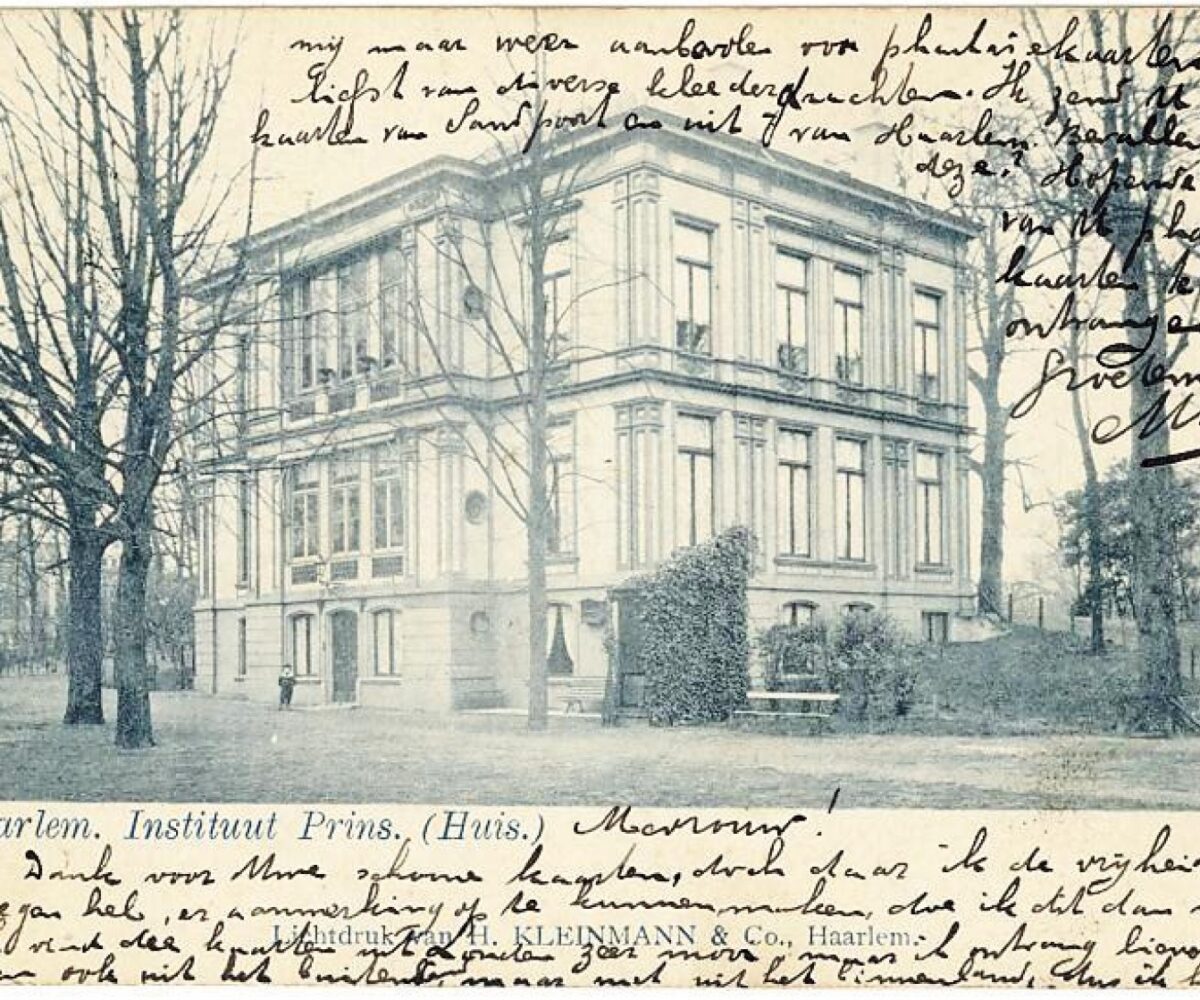 mij maar weer aanbevolen voor phantasiekaarten
liefst van diverse kleederdrachten. Ik zend U
kaarten van Sandpoort en uit van Haarlem. Bevallen
deze? Hopende
van U pha
kaarten te
ontvangen
Groetem
M
arlem. Instituut Prins. (Huis.) Mevrouw!
Dank voor Uwe schoone kaarten, doch daar ik de vrijhei
gan heb, er aanmerking op te kunnen maken, doe ik dit dan
vind dee kaarten uit zeer mooi, maar ik ontvang liever
Lichtdruk van H. KLEINMANN & Co., Haarlem.
ook uit het buitenland, maar niet uit het binnenland, dus ik